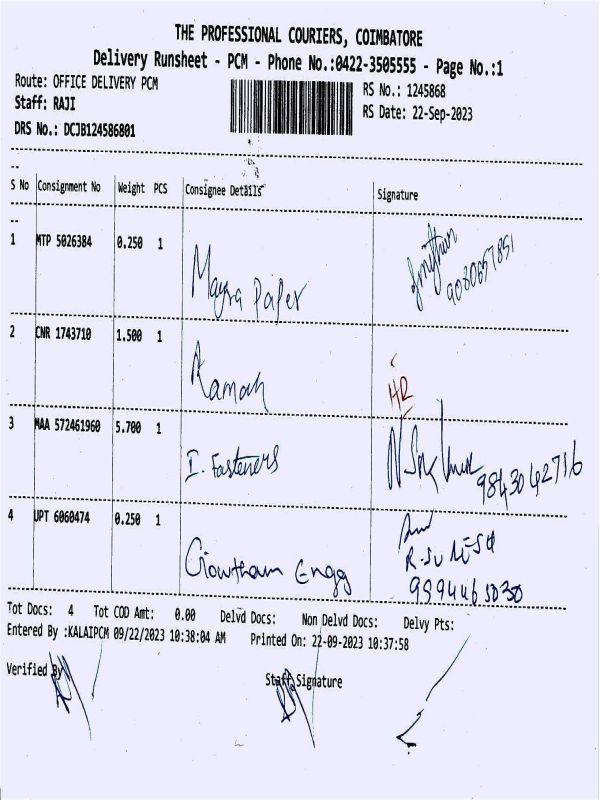 THE PROFESSIONAL COURIERS, COIMBATORE
Delivery Runsheet - PCM - Phone No.:0422-3505555 - Page No.:1
Route: OFFICE DELIVERY PCM
RS No.: 1245868
Staff: RAJI
RS Date: 22-Sep-2023
DRS No.: DCJB124586801
S No Consignment No Weight PCS Consignee Details Signature
1 MTP 5026384 0.250 1
Mayra Paper
9080657851
2 CNR 1743710 1.500 1
Ramach
HR
3 MAA 572461960 5.700 1
I. Fasteners
9843042716
4 UPT 6060474 0.250 1
Gowtham Engg
R. SURESH
9994465030
Tot Docs: 4 Tot COD Amt: 0.00 Delvd Docs: Non Delvd Docs: Delvy Pts:
Entered By :KALAIPCM 09/22/2023 10:38:04 AM Printed On: 22-09-2023 10:37:58
Verified By
Staff Signature